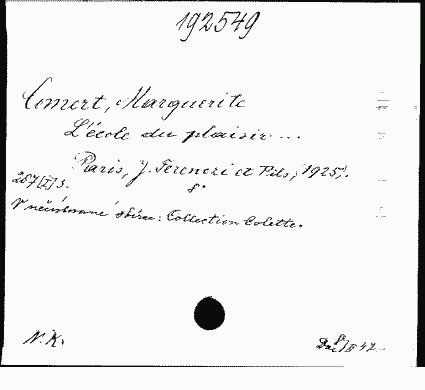 192549
Comert, Marguerite
L'école du plaisir...
Paris, J. Ferenczi et Fils, 1925.
267 [I] s. 8°
V nečíslované sbírce: Collection Colette.
N. K.